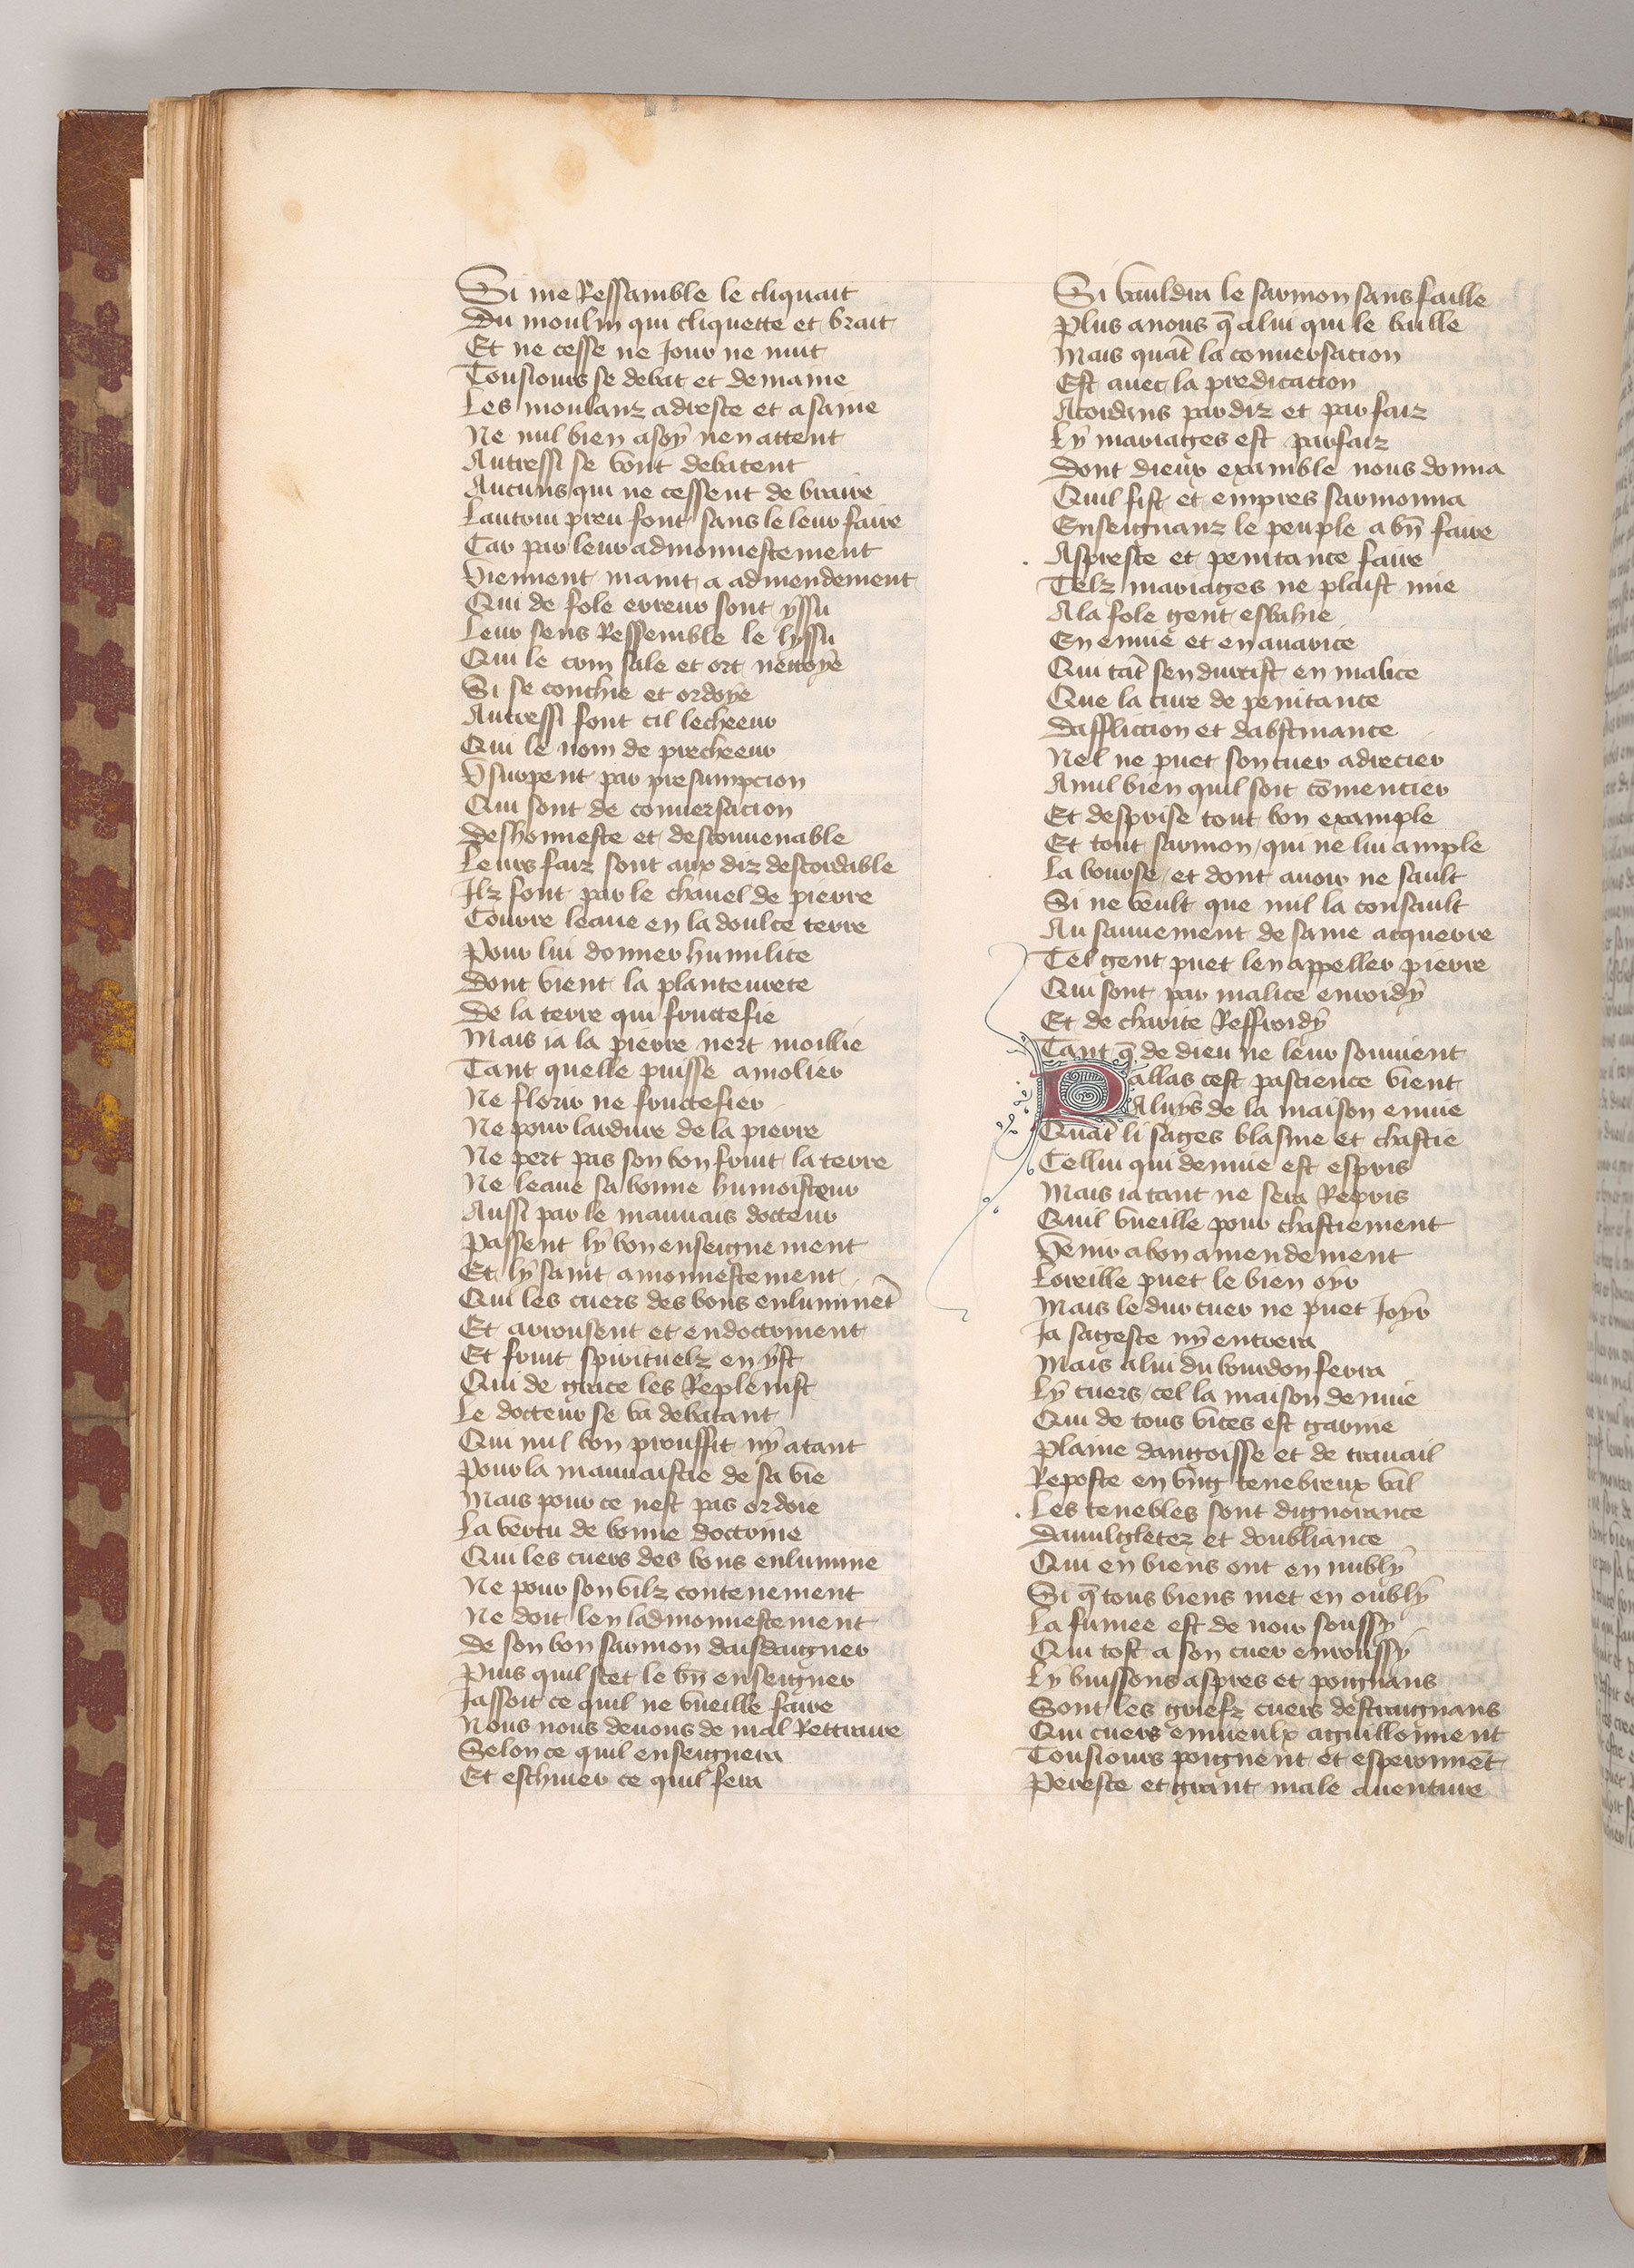 Si me Ressamble le cliquait
Du moulin qui cliquette et brait
Et ne cesse ne Jour ne nuit
Tousiours se debat et demaine
Les moulanz adreste et asaine
Ne nul bien a soy nen attent
Autressi se vont debatent
Aucuns qui ne cessent de braire
Lautrui preu font sans le leur faire
Car par leur admonnestement
Viennent maint a admendement
Qui de fole erreur sont yssu
Leur sens Ressemble le lyssu
Qui le com sale et ort nettoye
Si se conchie et ordoye
Autressi font cil lecheeur
Qui le nom de precheeur
Vsurpent par presumpcion
Qui sont de conuersacion
Deshonneste et desconuenable
Leurs faiz sont aux diz descordable
Ilz font par le chanel de pierre
Courre leaue en la doulce terre
Pour lui donner humilite
Dont vient la planteurete
De la terre qui fructefie
Mais ia la pierre nert moillie
Tant quelle puisse amolier
Ne florir ne fructefier
Ne pour lardure de la pierre
Ne pert pas son bon fruit la terre
Ne leaue sa bonne humoisteur
Aussi par le mauuais docteur
Passent ly bon enseignement
Et ly saint amonnestement
Qui les cuers des bons enluminēt
Et arrousent et endoctrinent
Et fruit spirituelz en yst
Qui de grace les Replenist
Le docteur se va debatant
Qui nul bon prouffit ny atant
Pour la mauuaistie de sa vie
Mais pour ce nest pas ordoie
La vertu de bonne doctrine
Qui les cuers des bons enlumine
Ne pour son vilz contenement
Ne doit len ladmonnestement
De son bon sarmon daisdaigner
Puis quil scet le bn̄ enseigner
Jassoit ce quil ne vueille faire
Nous nous deuons de mal Rettraire
Selon ce quil enseignera
Et eschiuer ce quil fera
Si vauldra le sarmon sans faille
Plus a nous q̄ a lui qui le baille
Mais quāt la conuersacion
Est auec la predicacion
Acordans par diz et par faiz
Ly mariages est parfaiz
Dont dieux examble nous donna
Quil fist et empres sarmonna
Enseignanz le peuple a bn̄ faire
Aspreste et penitance faire
Telz mariages ne plaist mie
A la fole gent esbahie
En enuie et en auarice
Qui tāt sendurcist en malice
Que la cure de penitance
Dafflicion et dabstinance
Nel ne puet son cuer adrecier
A nul bien quil soit cōmencier
Et desprise tout bon example
Et tout sarmon qui ne lui ample
La bourse et dont auoir ne sault
Si ne veult que nul la consault
Au sauuement de same acquerre
Tel gent puet len appeller pierre
Qui sont par malice enroidy
Et de charite Reffroidy
Tant q̄ de dieu ne leur souuient
Pallas cest pascience vient
A luys de la maison enuie
Quāt li sages blasme et chastie
Cellui qui denuie est espris
Mais ia tant ne sera Repris
Quil vueille pour chastiement
Venir a bon amendement
Loreille puet le bien oyr
Mais le dur cuer ne puet Joyr
Ja sageste ny entrera
Mais a lui du bourdon ferra
Ly cuers cel la maison denuie
Qui de tous vices est garnie
Plaine dangoisse et de trauail
Reposte en vng tenebreux val
Les tenebles sont dignorance
Dauulgletez et doubliance
Qui en biens ont en nubly
Si q̄ tous biens met en oubly
La fumee est de noir soussy
Qui tost a son cuer enroussy
Ly buissons aspres et poignans
Sont les griefz cuers destraignans
Qui cuers enuieulx aguillonnent
Tousiours poignent et esperonnēt
Pereste et grant male auenture